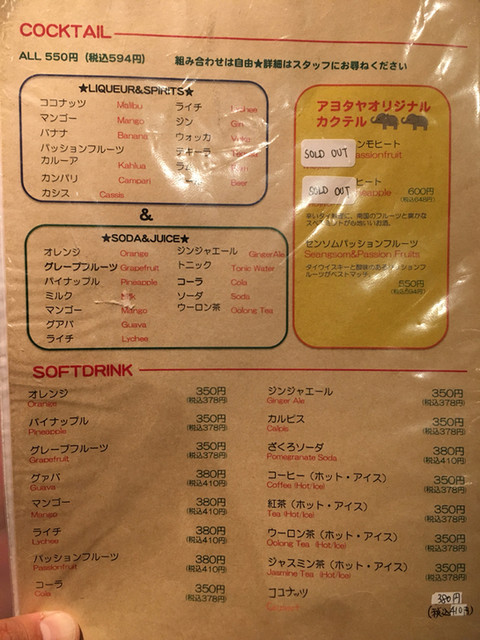 COCKTAIL
ALL 550円（税込594円）　組み合わせは自由★詳細はスタッフにお尋ねください
★LIQUEUR&SPIRITS★
ココナッツ Malibu
マンゴー Mango
バナナ Banana
パッションフルーツ
カルーア Kahlua
カンパリ Campari
カシス Cassis
ライチ
ジン Gin
ウォッカ
テキーラ
ラム
Beer
&
★SODA&JUICE★
オレンジ Orange
グレープフルーツ Grapefruit
パイナップル Pineapple
ミルク Milk
マンゴー Mango
グアバ Guava
ライチ Lychee
ジンジャエール GingerAle
トニック Tonic Water
コーラ Cola
ソーダ Soda
ウーロン茶 Oolong Tea
アヨタヤオリジナル
カクテル
ンモヒート
SOLD OUT
assionfruit
ヒート
SOLD OUT
600円
(税込648円)
センソムパッションフルーツ
Seangsom&Passion Fruits
550円
(税込594円)
SOFTDRINK
オレンジ 350円
Orange (税込378円)
パイナップル 350円
Pineapple (税込378円)
グレープフルーツ 350円
Grapefruit (税込378円)
グァバ 380円
Guava (税込410円)
マンゴー 380円
Mango (税込410円)
ライチ 380円
Lychee (税込410円)
パッションフルーツ 380円
Passionfruit (税込410円)
コーラ 350円
Cola (税込378円)
ジンジャエール 350円
Ginger Ale (税込378円)
カルピス 350円
Calpis (税込378円)
ざくろソーダ 380円
Pomegranate Soda (税込410円)
コーヒー（ホット・アイス） 350円
Coffee (Hot/Ice) (税込378円)
紅茶（ホット・アイス） 350円
Tea (Hot/Ice) (税込378円)
ウーロン茶（ホット・アイス） 350円
Oolong Tea (Hot/Ice) (税込378円)
ジャスミン茶（ホット・アイス） 350円
Jasmine Tea (Hot/Ice) (税込378円)
ココナッツ 380円
(税込410円)